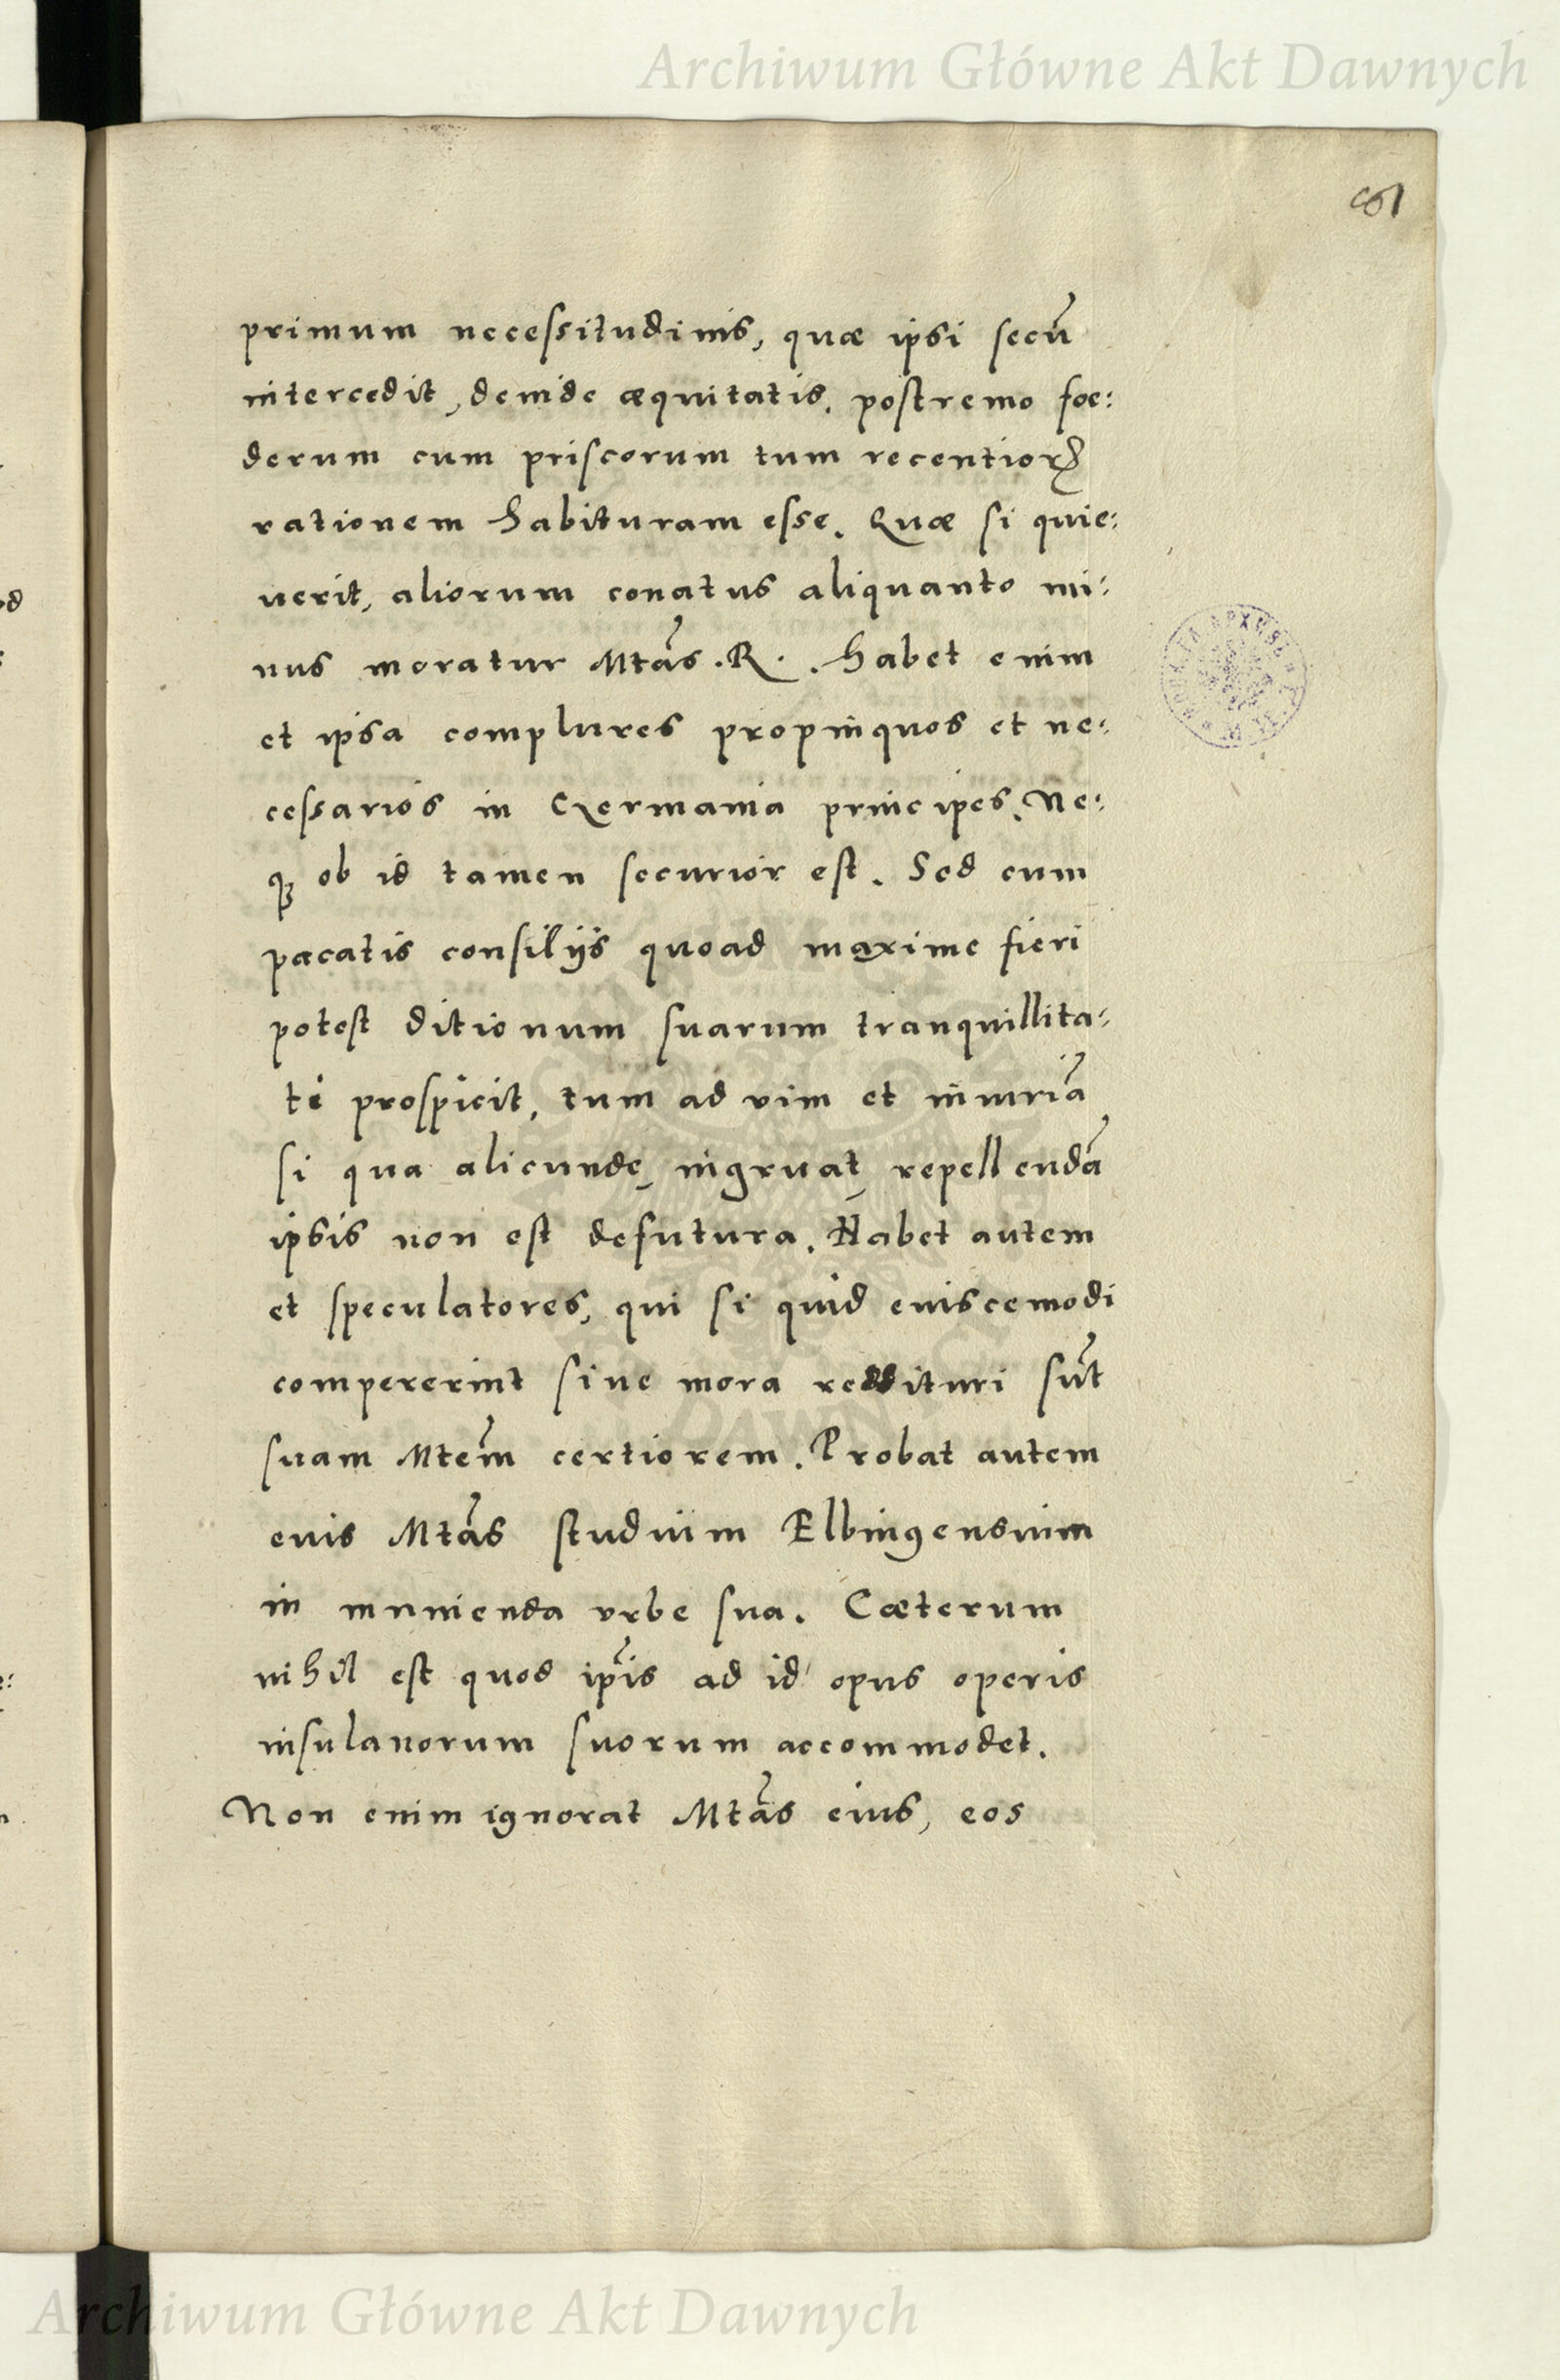 Archiwum Główne Akt Dawnych
primum necessitudinis, quæ ipsi secū
intercedit, deinde æquitatis, postremo foe:
derum cum priscorum tum recentiorꝝ
rationem habituram esse. Quæ si quie:
uerit, aliorum conatus aliquanto mi:
nus moratur Mtãs .R. . Habet enim
et ipsa complures propinquos et ne:
cessarios in Germania principes. Ne:
qꝫ ob id tamen securior est. Sed cum
pacatis consilijs quoad maxime fieri
potest ditionum suarum tranquillita:
ti prospicit, tum ad vim et iniuriã
si qua alicunde ingruat repellendã
ipsis non est defutura. Habet autem
et speculatores, qui si quid eiuscemodi
compererint sine mora reddituri sũt
suam Mtem̃ certiorem. Probat autem
eius Mtãs studium Elbingensium
in munienda vrbe sua. Cæterum
nihil est quod ip̃is ad id opus operis
insulanorum suorum accommodet.
Non enim ignorat Mtãs eius, eos
Archiwum Główne Akt Dawnych